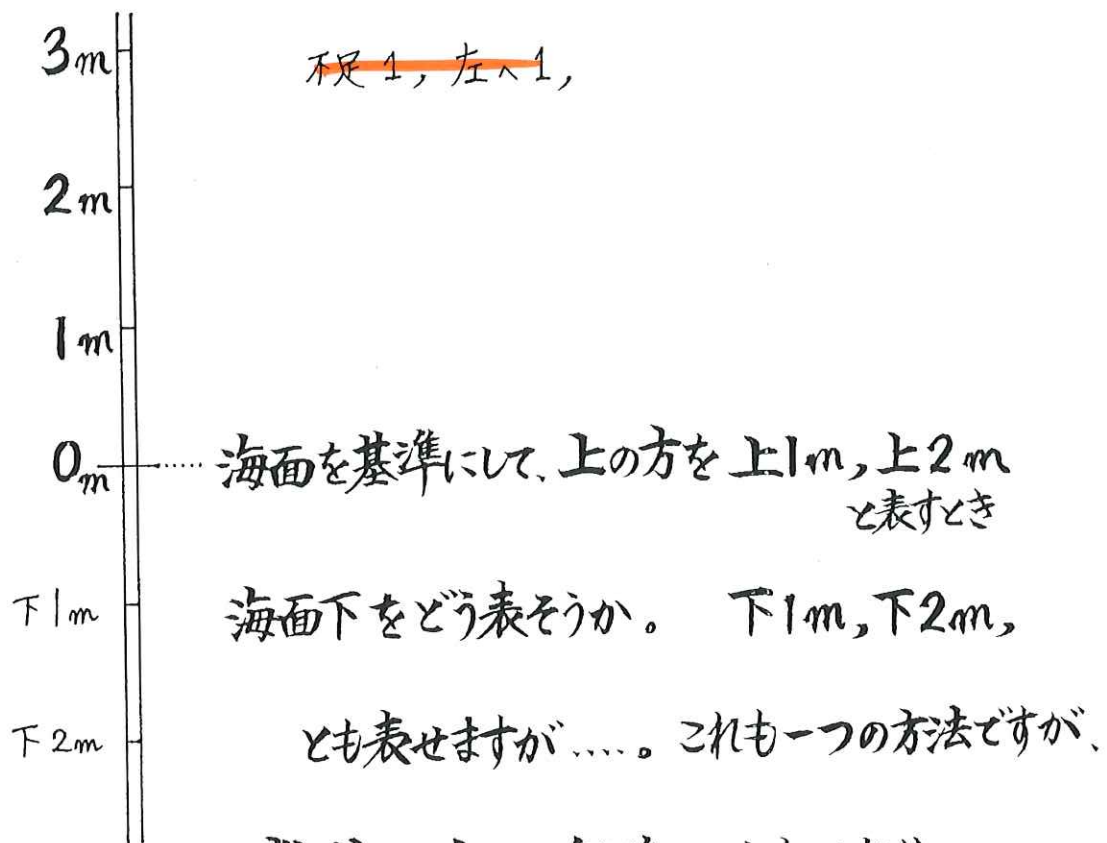 3m
不足1, 左へ1,
2m
1m
0m ……海面を基準にして、上の方を 上1m, 上2m
と表すとき
下1m 海面下をどう表そうか。 下1m, 下2m,
下2m とも表せますが……。これも一つの方法ですが、